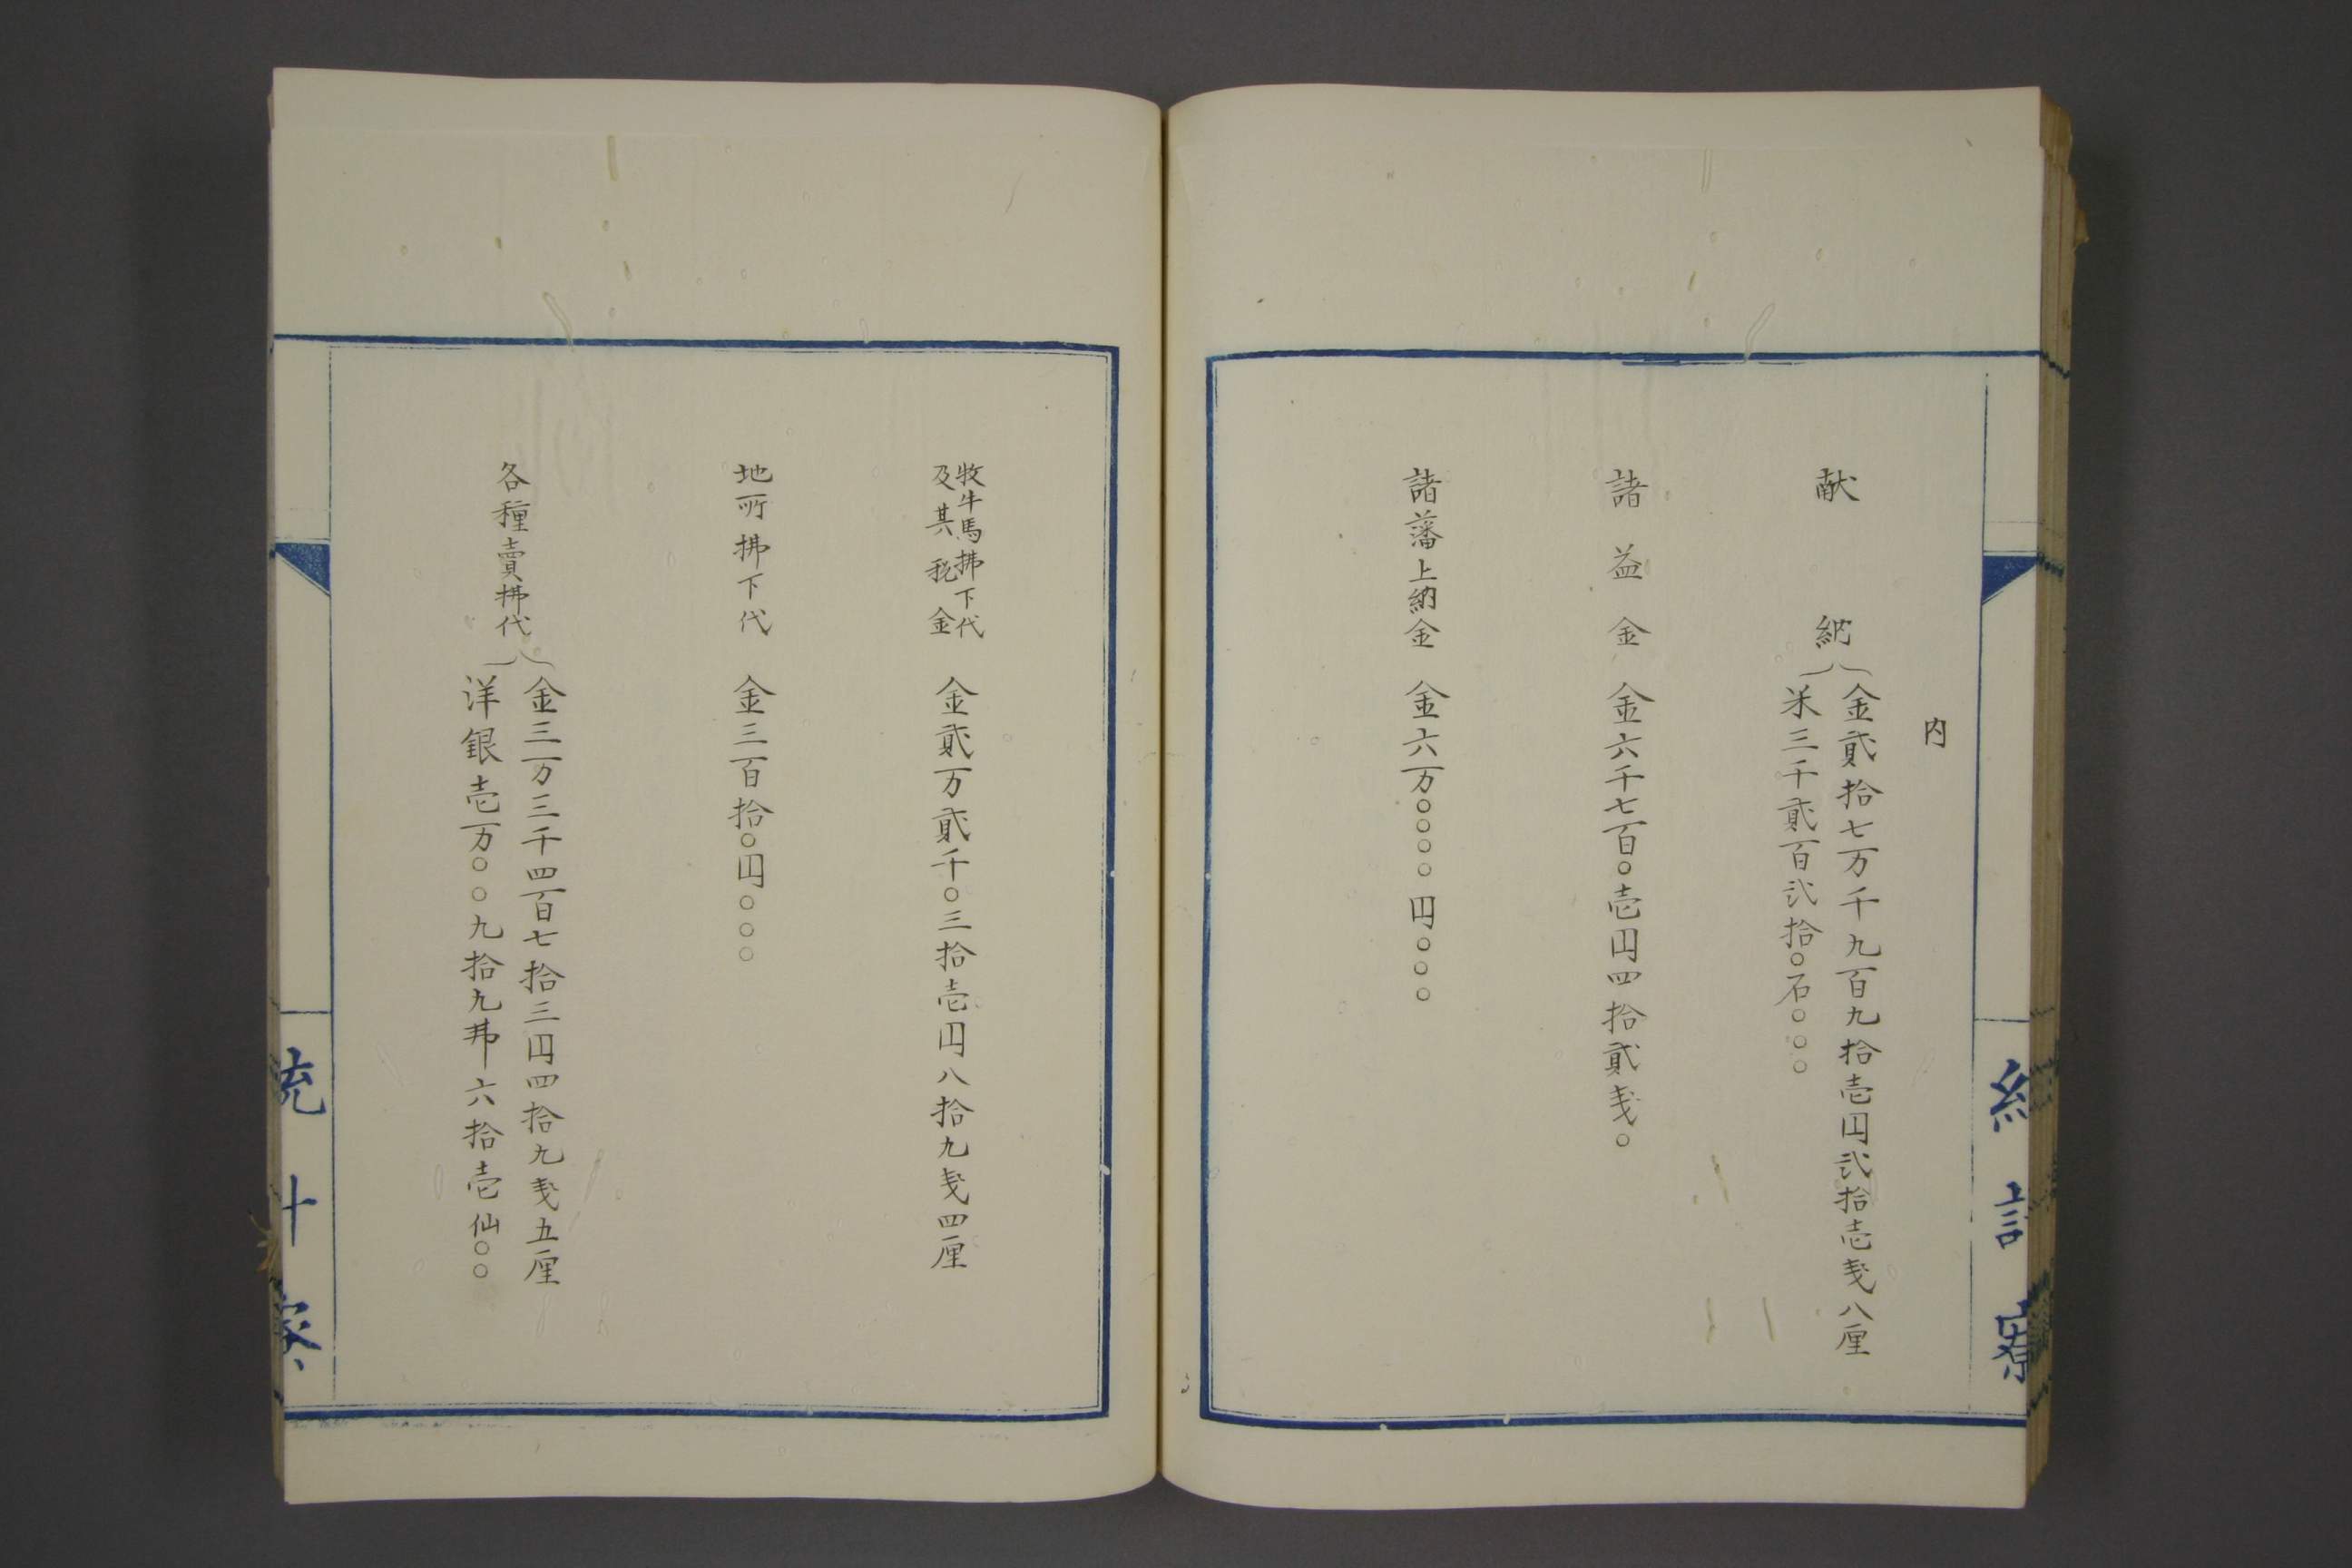 内
献納
金貳拾七万千九百九拾壱円弐拾壱戔八厘
米三千貳百弐拾〇石〇〇〇
諸益金 金六千七百〇壱円四拾貳戔〇
諸藩上納金 金六万〇〇〇〇円〇〇〇
牧牛馬拂下代
及其税金
金貳万貳千〇三拾壱円八拾九戔四厘
地所拂下代 金三百拾〇円〇〇〇
各種賣拂代
金三万三千四百七拾三円四拾九戔五厘
洋銀壱万〇〇九拾九弗六拾壱仙〇〇
統計寮